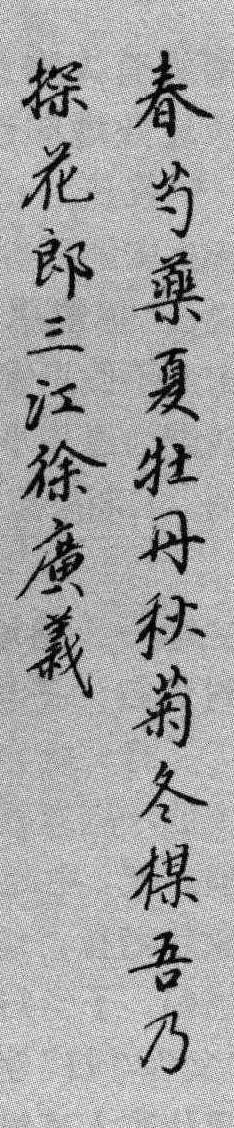 春芍藥夏牡丹秋菊冬楳吾乃
探花郎三江徐廣義